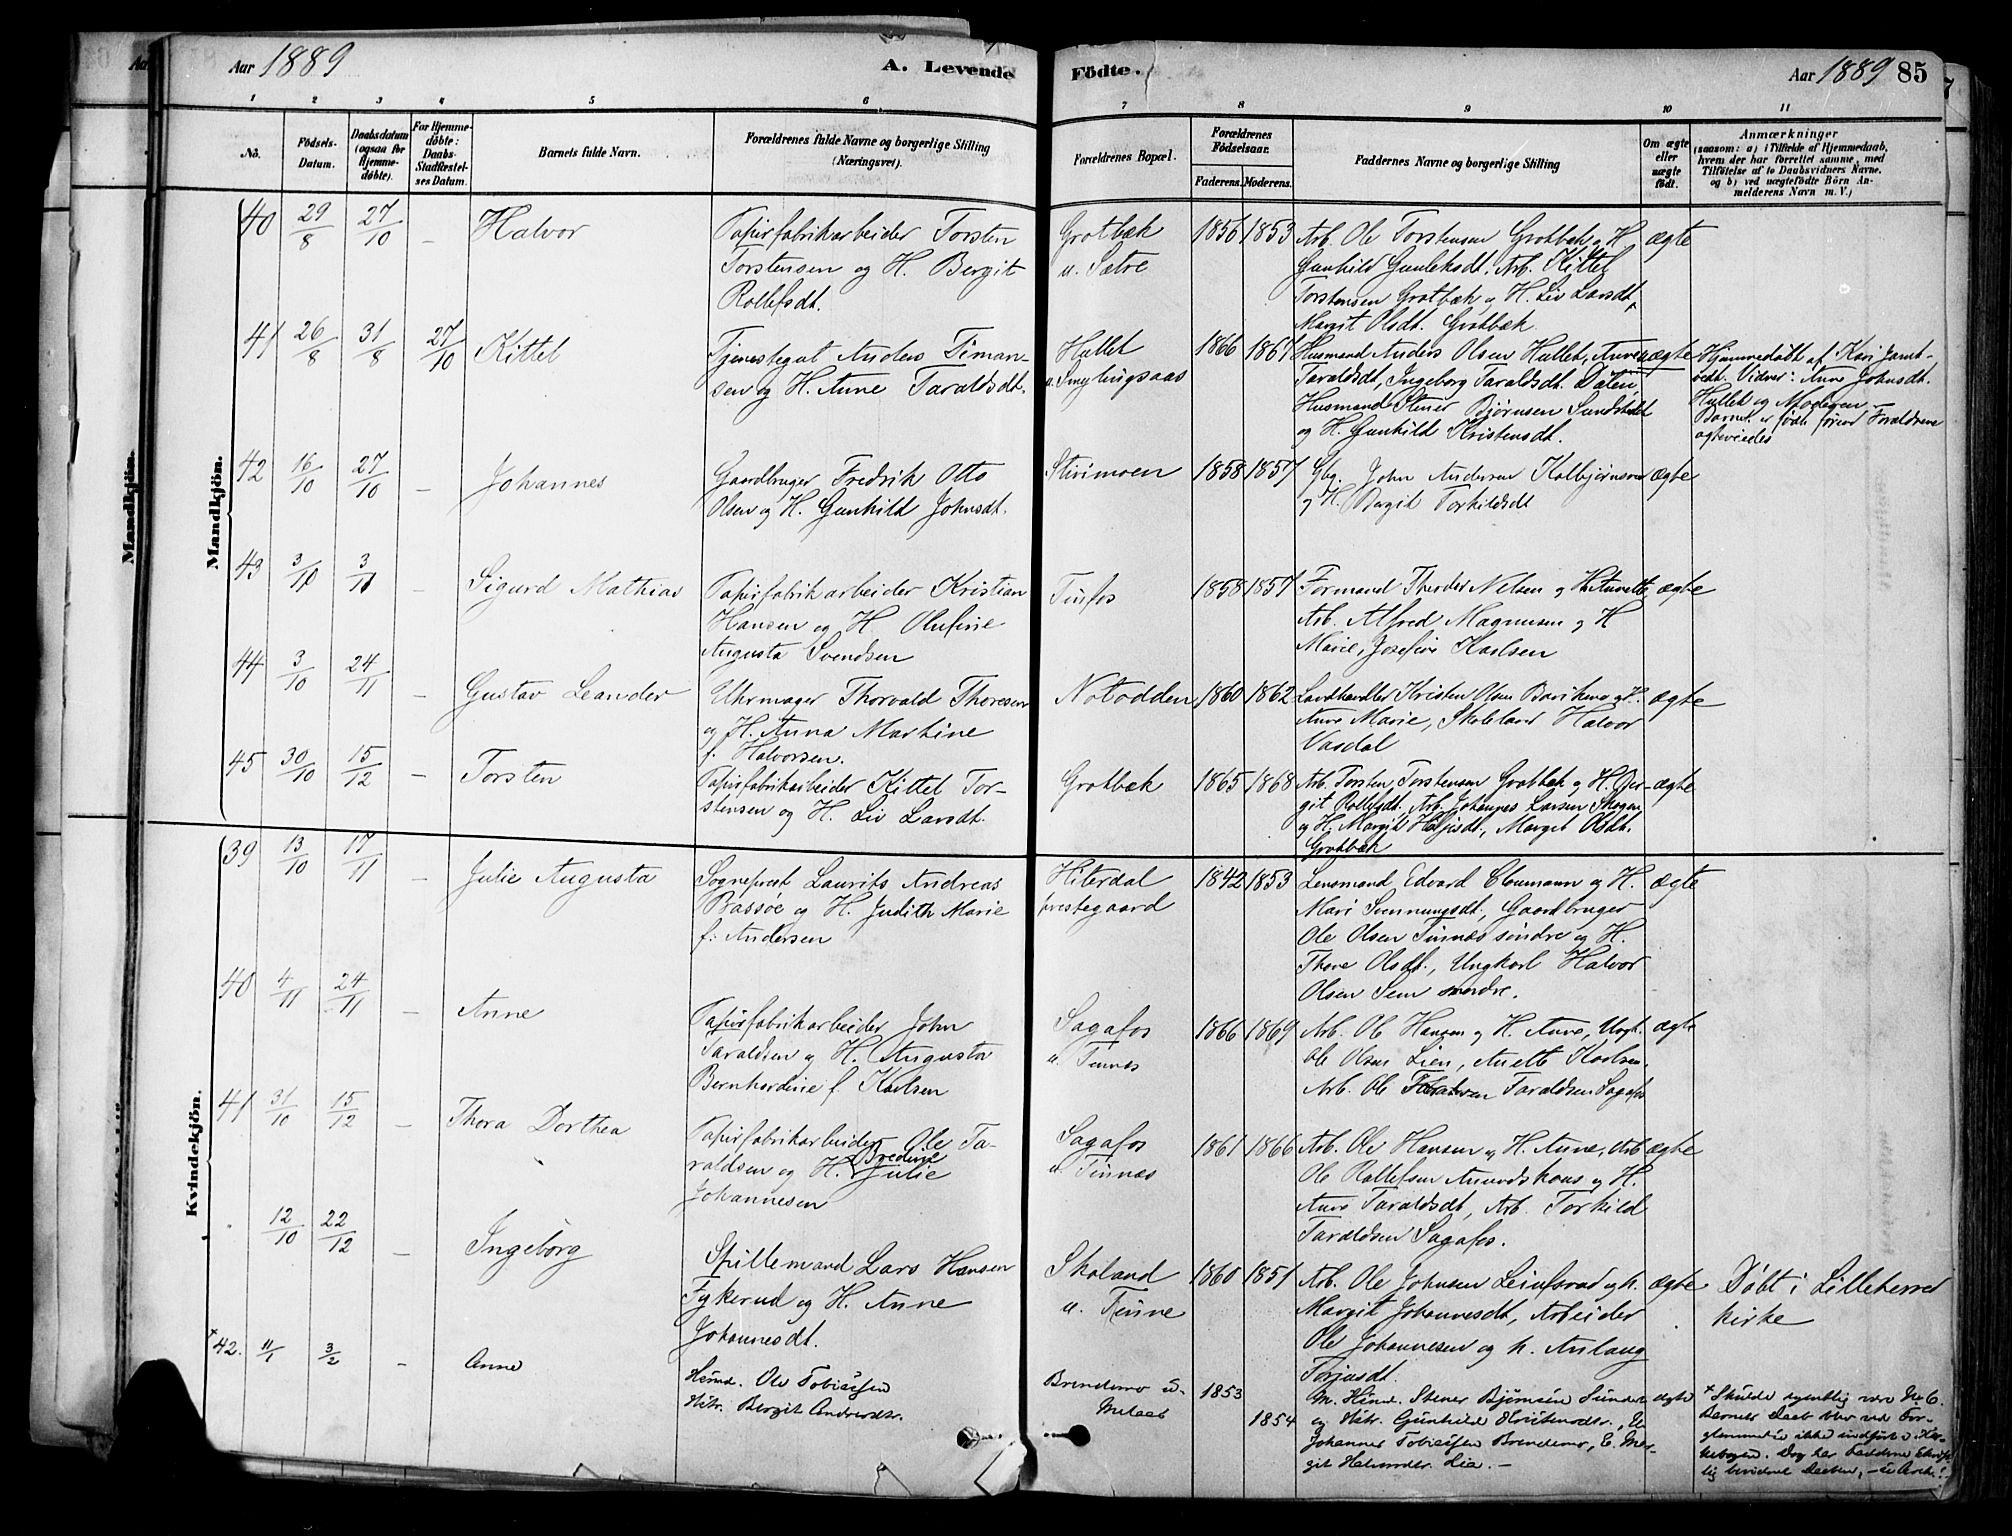 Aar 1889
A. Levende Födte.
Aar 1889 85
1 2 3 4 5 6 7 8 9 10 11
No.
Födsels-Datum.
Daabsdatum (ogsaa for Hjemme-döbte).
For Hjemme-döbte: Daabs-Stadfæstel-ses Datum.
Barnets fulde Navn.
Forældrenes fulde Navne og borgerlige Stilling (Næringsvei).
Forældrenes Bopæl.
Forældrenes Födselsaar.
Faderens. Moderens.
Faddernes Navne og borgerlige Stilling
Om ægte eller uægte födt.
Anmærkninger
(saasom: a) i Tilfælde af Hjemmedaab,
hvem der har forrettet samme, med
Tilföielse af to Daabsvidners Navne,
og b) ved uægtefödte Börn An-
melderens Navn m. V.)
Mandkjön.
Mandkjön.
40 29/8 27/10 - Halvor
Papirfabrikarbeider Torsten
Torstensen og H. Bergit
Rollefsdt.
Grotbæk
u. Sætre
1856 1853
Arb. Ole Torstensen Grotbæk og H.
Gunhild Gunleksdt, Arb. Kittel
Torstensen Grotbæk og H. Liv Larsdt,
Margit Olsdt. Grotbæk
ægte
41 26/8 31/8 27/10 Kittel
Tjenestegut Anders Timan-
sen og H. Anne Taraldsdt.
Hullet
1866 1867
Husmand Anders Olsen Hullet, Anne
Taraldsdt, Ingeborg Taraldsdt.
Husmand Stener Bjørnsen
og H. Gunhild Kristensdt.
uægte
Hjemmedøbt af Kari
Vidner: Anne Johnsdt.
Hullet og Moderen -
Barnet er født førend Forældrene
ægteviedes
42 16/10 27/10 - Johannes
Gaardbruger Fredrik Otto
Olsen og H. Gunhild Johnsdt.
Stivimoen
1858 1857
Gbg. John Andersen Kolbjørnsen
og H. Bergit Torkildsdt
ægte
43 3/10 3/11 - Sigurd Mathias
Papirfabrikarbeider Kristian
Hansen og H. Olufine
Augusta Svendsen
Tinfos
1858 1857
Formand Theodor Nelsen og H. Anette,
Arb. Alfred Magnusen og H
Marie, Josefine Karlsen
ægte
44 3/10 24/11 - Gustav Leander
Uhrmager Thorvald Thoresen
og H. Anna Martine
f. Halvorsen.
Notodden
1860 1862
Landhandler Kristen Olsen og H.
Anne Marie, Skolelærer Halvor
Vasdal
ægte
45 30/10 15/12 - Torsten
Papirfabrikarbeider Kittel Tor-
stensen og H. Liv Larsdt.
Grotbæk
1865 1868
Arb. Torsten Torstensen Grotbæk og H. Ber-
git Rollefsdt. Arb. Johannes Larsen Skogen
og H. Margit Halvsdt., Margit Olsdt.
Grotbæk
ægte
Kvindekjön.
39 13/10 17/11 - Julie Augusta
Sogneprest Laurits Andreas
Bassøe og H. Judith Marie
f: Andersen
Hiterdal
prestegaard
1842 1853
Lensmand Edvard Cloumann og H.
Mari Svennungsdt., Gaardbruger
Ole Olsen Tinnæs søndre og H.
Thone Olsdt., Ungkarl Halvor
Olsen Sem nordre.
ægte
40 4/11 24/11 - Anne
Papirfabrikarbeider John
Taraldsen og H. Augusta
Bernhardine f. Karlsen
Sagafos
u. Tinnæs
1866 1869
Arb. Ole Hansen og H. Anne, Ungk.
Ole Olsen Lien, Anette Karlsen,
Arb. Ole Taraldsen Sagafos
ægte
41 31/10 15/12 - Thora Dorthea
Papirfabrikarbeider Ole Ta-
raldsen og H. Bredine Julie
Johannesen
Sagafos
u. Tinnæs
1861 1866
Arb. Ole Hansen og H. Anne, Arb
Ole Rollefsen og H.
Anne Taraldsdt, Arb. Torkild
Taraldsen Sagafos.
ægte
12/10 22/12 - Ingeborg
Spillemand Lars Hansen
Fykerud og H. Anne
Johannesdt.
Skoland
u. Tinne
1860 1851
Arb. Ole Johnsen og h.
Margit Johannesdt, Arbeider
Ole Johannesen og h. Anlaug
Torjusdt.
ægte
Døbt i Lilleherred
kirke
+42. 11/1 3/2 - Anne
Husmd. Ole Tobiassen
Hstr. Bergit Andersdtr.
Brendemo u.
Melaas
1853 1854
M. Husmd. Stener Bjørnsen
og Hstr. Gunhild Kristensdtr.,
Johannes Tobiassen Brendemo, E. Mar-
git Halvorsdtr. Lia. -
ægte
+ Skulde egentlig være No 6.
Barnets Daab blev ved For-
glemmelse ikke indført i Kir-
kebogen. Dog har Fadderne skrift-
lig bevidnet Daaben,